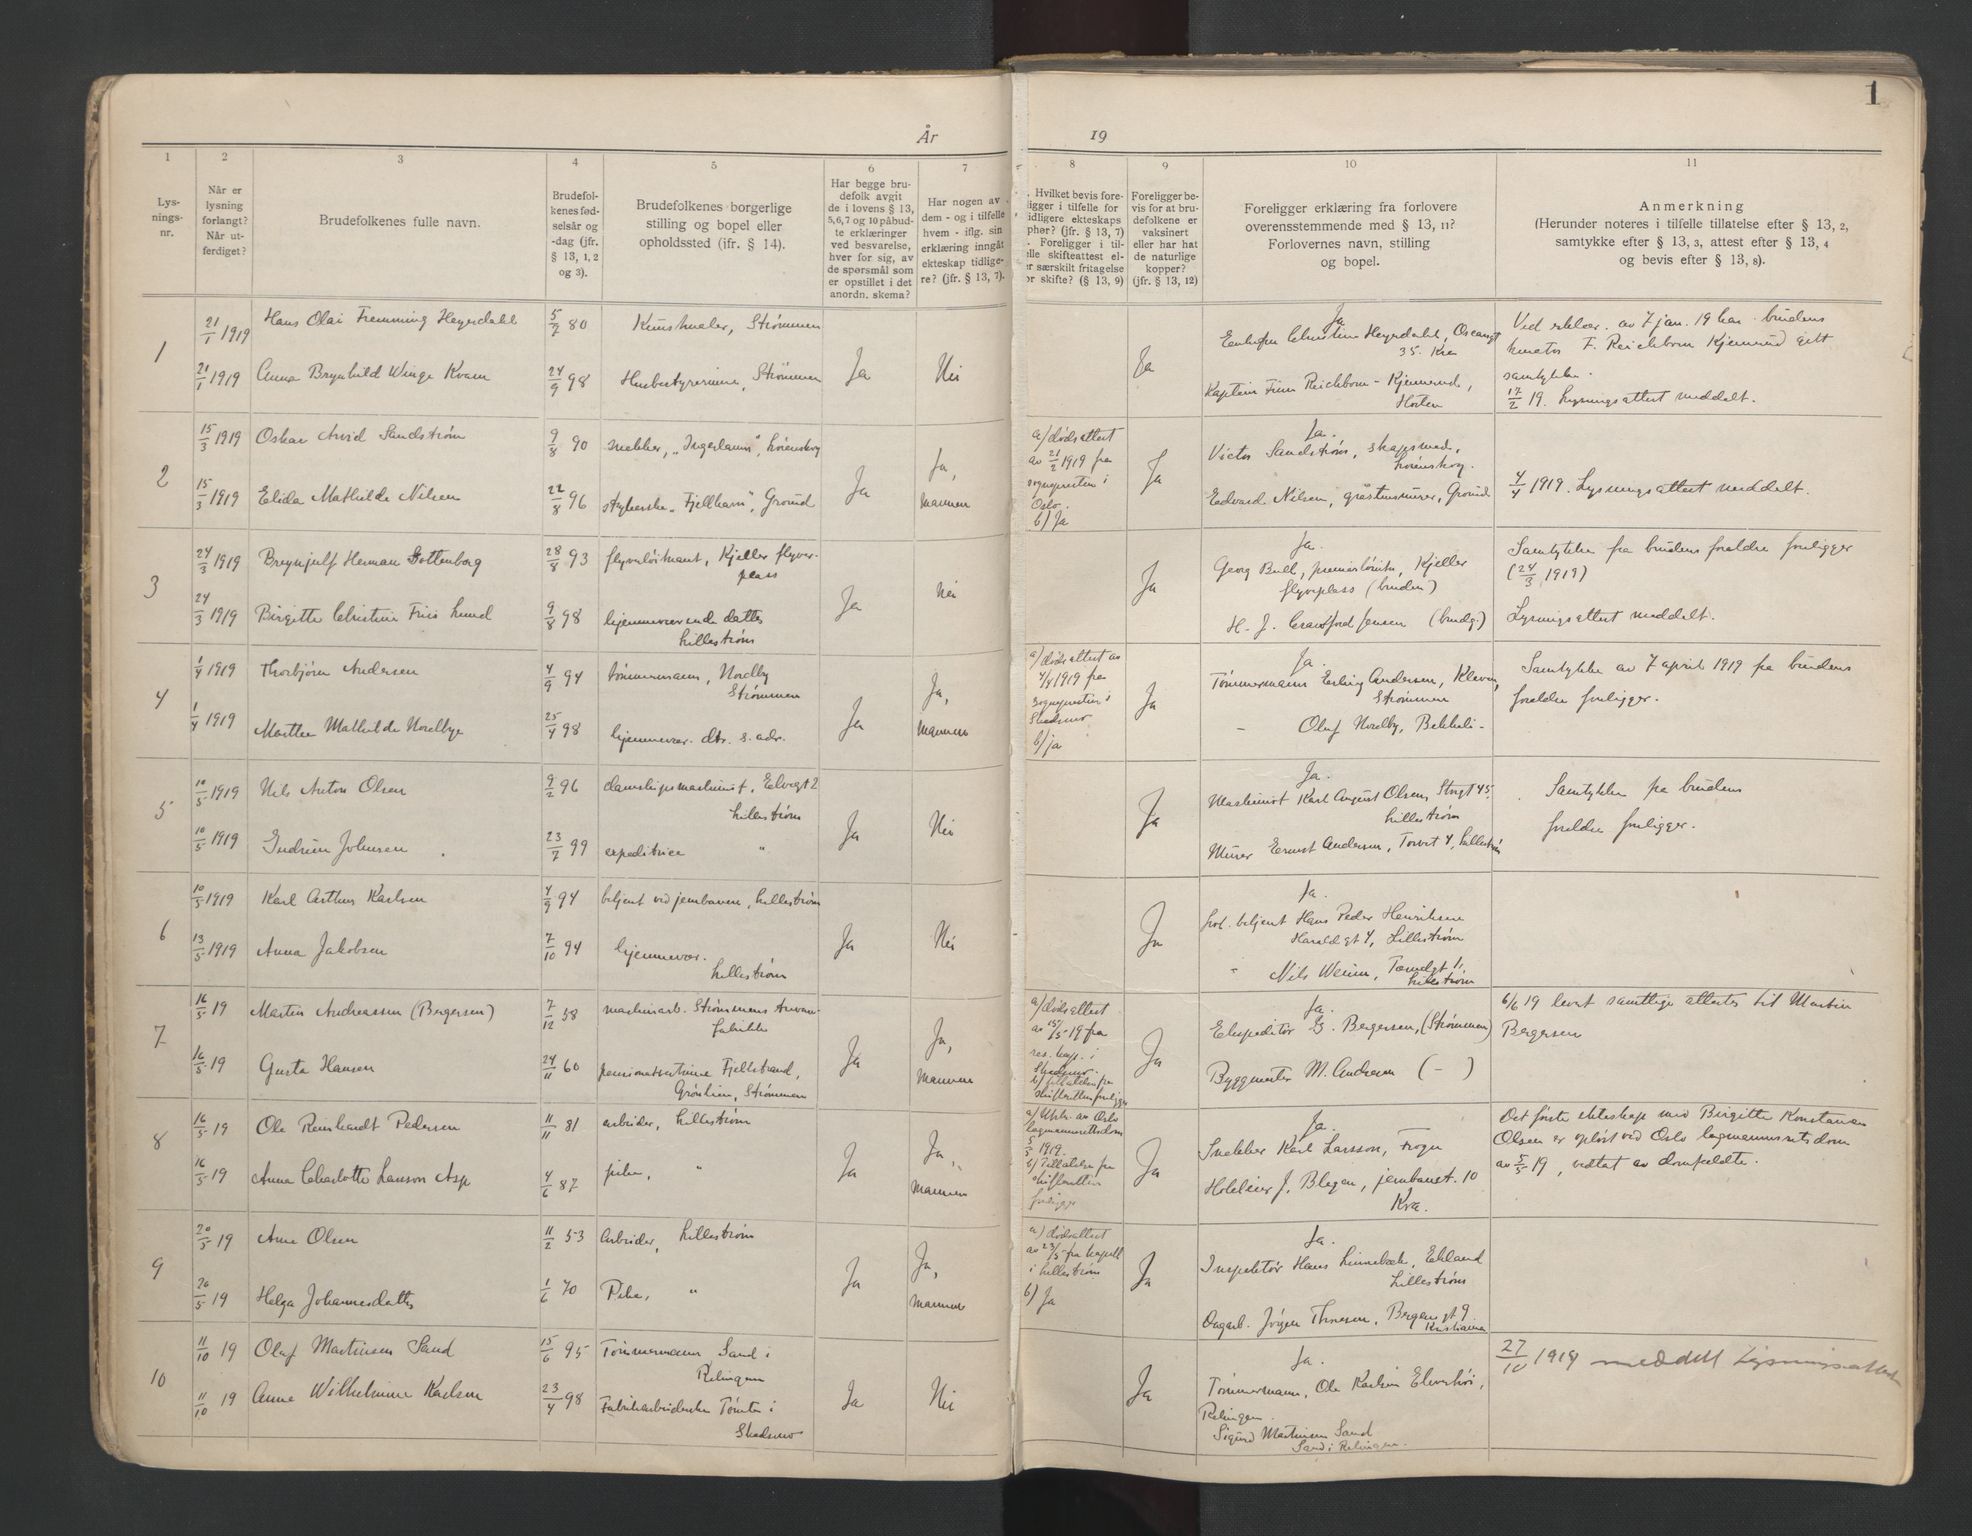 1
År 19
1 2 3 4 5 6 7 8 9 10 11
Lys-
nings-
nr.
Når er
lysning
forlangt?
Når ut-
ferdiget?
Brudefolkenes fulle navn.
Brudefol-
kenes fød-
selsår og
-dag (jfr.
§ 13, 1, 2
og 3).
Brudefolkenes borgerlige
stilling og bopel eller
opholdssted (ifr. § 14).
Har begge bru-
defolk avgit
de i lovens § 13,
5,6,7 og 10 påbud-
te erklæringer
ved besvarelse,
hver for sig, av
de spørsmål som
er opstillet i det
anordn. skema?
Har nogen av
dem - og i tilfelle
hvem - iflg. sin
erklæring inngått
ekteskap tidlige-
re? (jfr. § 13, 7).
Hvilket bevis fore-
ligger i tilfelle for
idligere ekteskaps
phør? (jfr. § 13, 7)
Foreligger i til-
elle skifteattest el-
er særskilt fritagelse
or skifte? (§ 13, 9)
Foreligger be-
vis for at bru-
defolkene er
vaksinert
eller har hat
de naturlige
kopper?
(jfr. § 13, 12)
Foreligger erklæring fra forlovere
overensstemmende med § 13, 11?
Forlovernes navn, stilling
og bopel.
Anmerkning
(Herunder noteres i tilfelle tillatelse efter § 13, 2,
samtykke efter § 13, 3, attest efter § 13, 4
og bevis efter § 13, 8).
1
21/1 1919 Hans Olai Fremming Heyerdahl 5/7 80 Kunstmaler, Strømmen
21/1 1919 Anna Brynhild Winge Kvam 24/9 98 Husbestyrerinne, Strømmen
Ja Nei Ja
Ja
Christine Heyerdahl, Oscarsgt
35. Kra
Kaptein Finn Reichborn-Kjennerud,
Horten
Ved erklær. av 7 jan. 19 har brudens
F. Reichborn Kjennerud gitt
samtykke.
17/2 19. Lysningsattest meddelt.
2
15/3 1919 Oskar Arvid Sandstrøm 9/8 90 snekker, „Ingerlaum“, Lørenskog
15/3 1919 Elida Mathilde Nilsen 22/8 96 strykerske „Fjellhavn“, Grorud
Ja Ja,
mannen
a/ dødsattest
av 21/2 1919 fra
sognepresten i
Oslo.
b) Ja
Ja
Ja.
Victor Sandstrøm, skapsmed,
Lørenskog.
Edvard Nilsen, gråstensmurer, Grorud
4/4 1919. Lysningsattest meddelt.
3
24/3 1919 Brynjulf Herman Gottenborg 28/8 93 flyverløitnant, Kjeller flyver-
plass
24/3 1919 Birgitte Christine Friis Lund 9/8 98 hjemmeværende datter
Lillestrøm
Ja Nei Ja
Ja.
Georg Bull, premierløitn, Kjeller
flyveplass (bruden)
H. J. Crawfurd Jensen (brudg.)
Samtykke fra brudens foreldre foreligger
(24/3 1919)
Lysningsattest meddelt.
4
1/4 1919 Thorbjørn Andersen 4/9 94 tømmermann, Nordby
Strømmen
1/4 1919 Marthe Mathilde Nordbye 25/4 98 hjemmevær. dtr. s. adr.
Ja Ja,
mannen
a/ dødsattest av
4/4 1919 fra
sognepresten i
Skedsmo
b/ ja
Ja
Ja.
Tømmermann Erling Andersen, Kleven,
Strømmen
- Oluf Nordby, Bekkeli -
Samtykke av 7 april 1919 fra brudens
foreldre foreligger.
5
10/5 1919 Nils Anton Olsen 9/2 96 damskipsmaskinist, Elvegt 2
Lillestrøm
10/5 1919 Gudrun Johnsen 23/7 99 expeditrice "
Ja Nei Ja
Ja.
Maskinist Karl August Olsen, Storgt 45,
Lillestrøm
Murer Ernst Andersen, Torvet 4, Lillestrøm
Samtykke fra brudens
foreldre foreligger.
6
10/5 1919 Karl Arthur Karlsen 4/9 94 betjent ved jernbanen, Lillestrøm
13/5 1919 Anna Jakobsen 7/10 94 hjemmevær.
Lillestrøm
Ja Nei Ja
Ja.
betjent Hans Peder Henriksen
Haraldsgt 4, Lillestrøm
" Nils Werum,
Lillestrøm
7
16/5 19 Martin Andreassen (Bergersen) 7/12 58 maskinarb. Strømmens
fabrikk
16/5 19 Gusta Hansen 24/11 60 Fjellstrand,
Grønlien, Strømmen
Ja Ja,
mannen
a/ dødsattest
av 15/5 19 fra
res. kap. i
Skedsmo.
b/ tillatelse fra
skifteretten foreligger
Ja
Ja.
Ekspeditør G. Bergersen, (Strømmen)
Byggmester M. Andresen ( - )
6/6 19 levert samtlige attester til Martin
Bergersen
8
16/5 19 Ole Reinhardt Pedersen 11/11 81 arbeider, Lillestrøm
16/5 19 Anna Charlotte Larsson Asp 4/6 87 pike, "
Ja Ja,
mannen
a/ Utskr. av Oslo
lagmannsrettsdom
5/5 1919.
b/ Tillatelse fra
skifteretten
foreligger
Ja
Ja.
Snekker Karl Larsson, Frogn
Hoteleier J. Blegen, jernbanet. 10
Kra.
Det første ekteskap med Birgitte Konstanse
Olsen er opløst ved Oslo lagmannsrettsdom
av 5/5 19, vedtat av domfeldte.
9
20/5 19 Arne Olsen 11/2 53 Arbeider, Lillestrøm
20/5 19 Helga Johannesdatter 1/6 70 Pike, "
Ja Ja,
mannen
a) dødsattest
av 23/5 fra kapell
i Lillestrøm
b) Ja
Ja
Ja.
Inspektør Hans Linnebæk, Ekland
Lillestrøm
Dagarb. Jørgen Thoresen, Bergensgt 9.
Kristiania
10
11/10 19 Oluf Martinsen Sand 15/6 95 Tømmermann Sand i
Relingen
11/10 19 Anne Wilhelmine Karlsen 23/4 98 Fabrikarbeiderske Tomter i
Skedsmo
Ja Nei Ja
Ja.
Tømmermann, Ole Karlsen Elvestøi,
Relingen.
Sigurd Martinsen Sand
Sand i Relingen.
27/10 1919 meddelt Lysningsattest